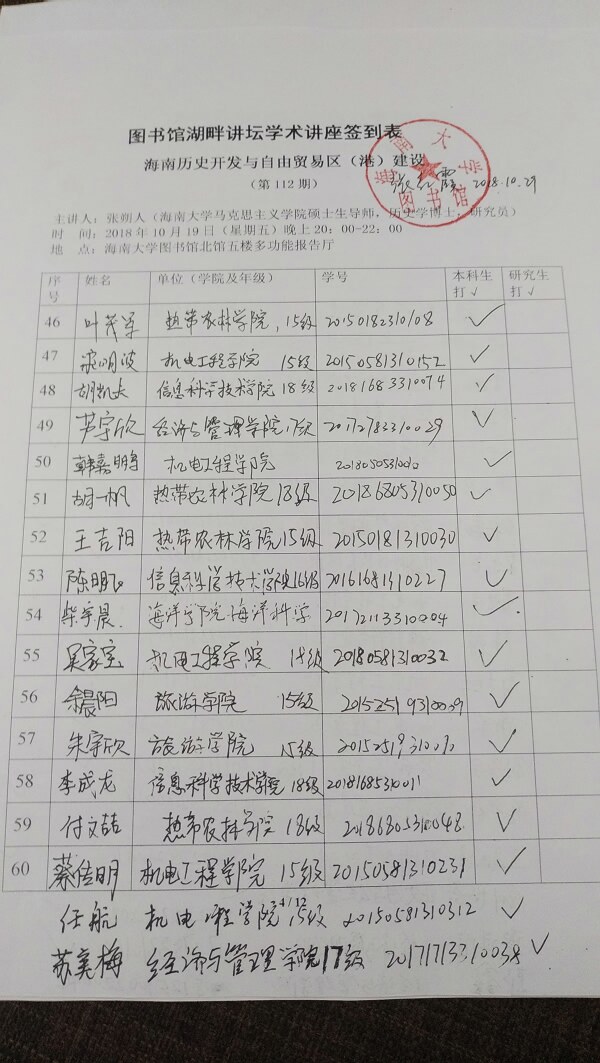 图书馆湖畔讲坛学术讲座签到表
海南历史开发与自由贸易区（港）建设
（第 112 期）
海南大学
图书馆
2018.10.29
主讲人：张朔人（海南大学马克思主义学院硕士生导师，历史学博士，研究员）
时 间：2018 年 10 月 19 日（星期五）晚上 20：00-22：00
地 点：海南大学图书馆北馆五楼多功能报告厅
序号 姓名 单位（学院及年级） 学号 本科生打√ 研究生打√
46 叶茂军 热带农林学院，15级 20150182310108 √
47 机电工程学院 15级 20150581310152 √
48 胡凯长 信息科学技术学院 18级 20181683310074 √
49 芦宇欣 经济与管理学院17级 20172783310029 √
50 韩嘉鹏 机电工程学院 √
51 胡一帆 热带农林学院18级 20186805310050 √
52 王吉阳 热带农林学院15级 20150181310030 √
53 陈鹏飞 信息科学技术学院16级 20161681310227 √
54 柴宇晨 海洋学院海洋科学 20172113310004 √
55 吴家宝 机电工程学院 18级 20180581310032 √
56 余晨阳 旅游学院 15级 20152519310009 √
57 朱宇欣 旅游学院 15级 √
58 李成龙 信息科学技术学院 18级 √
59 付文喆 热带农林学院 18级 20186805310048 √
60 蔡信明 机电工程学院 15级 20150581310231 √
任航 机电工程学院 15级 20150581310312 √
苏美梅 经济与管理学院17级 20171713310038 √